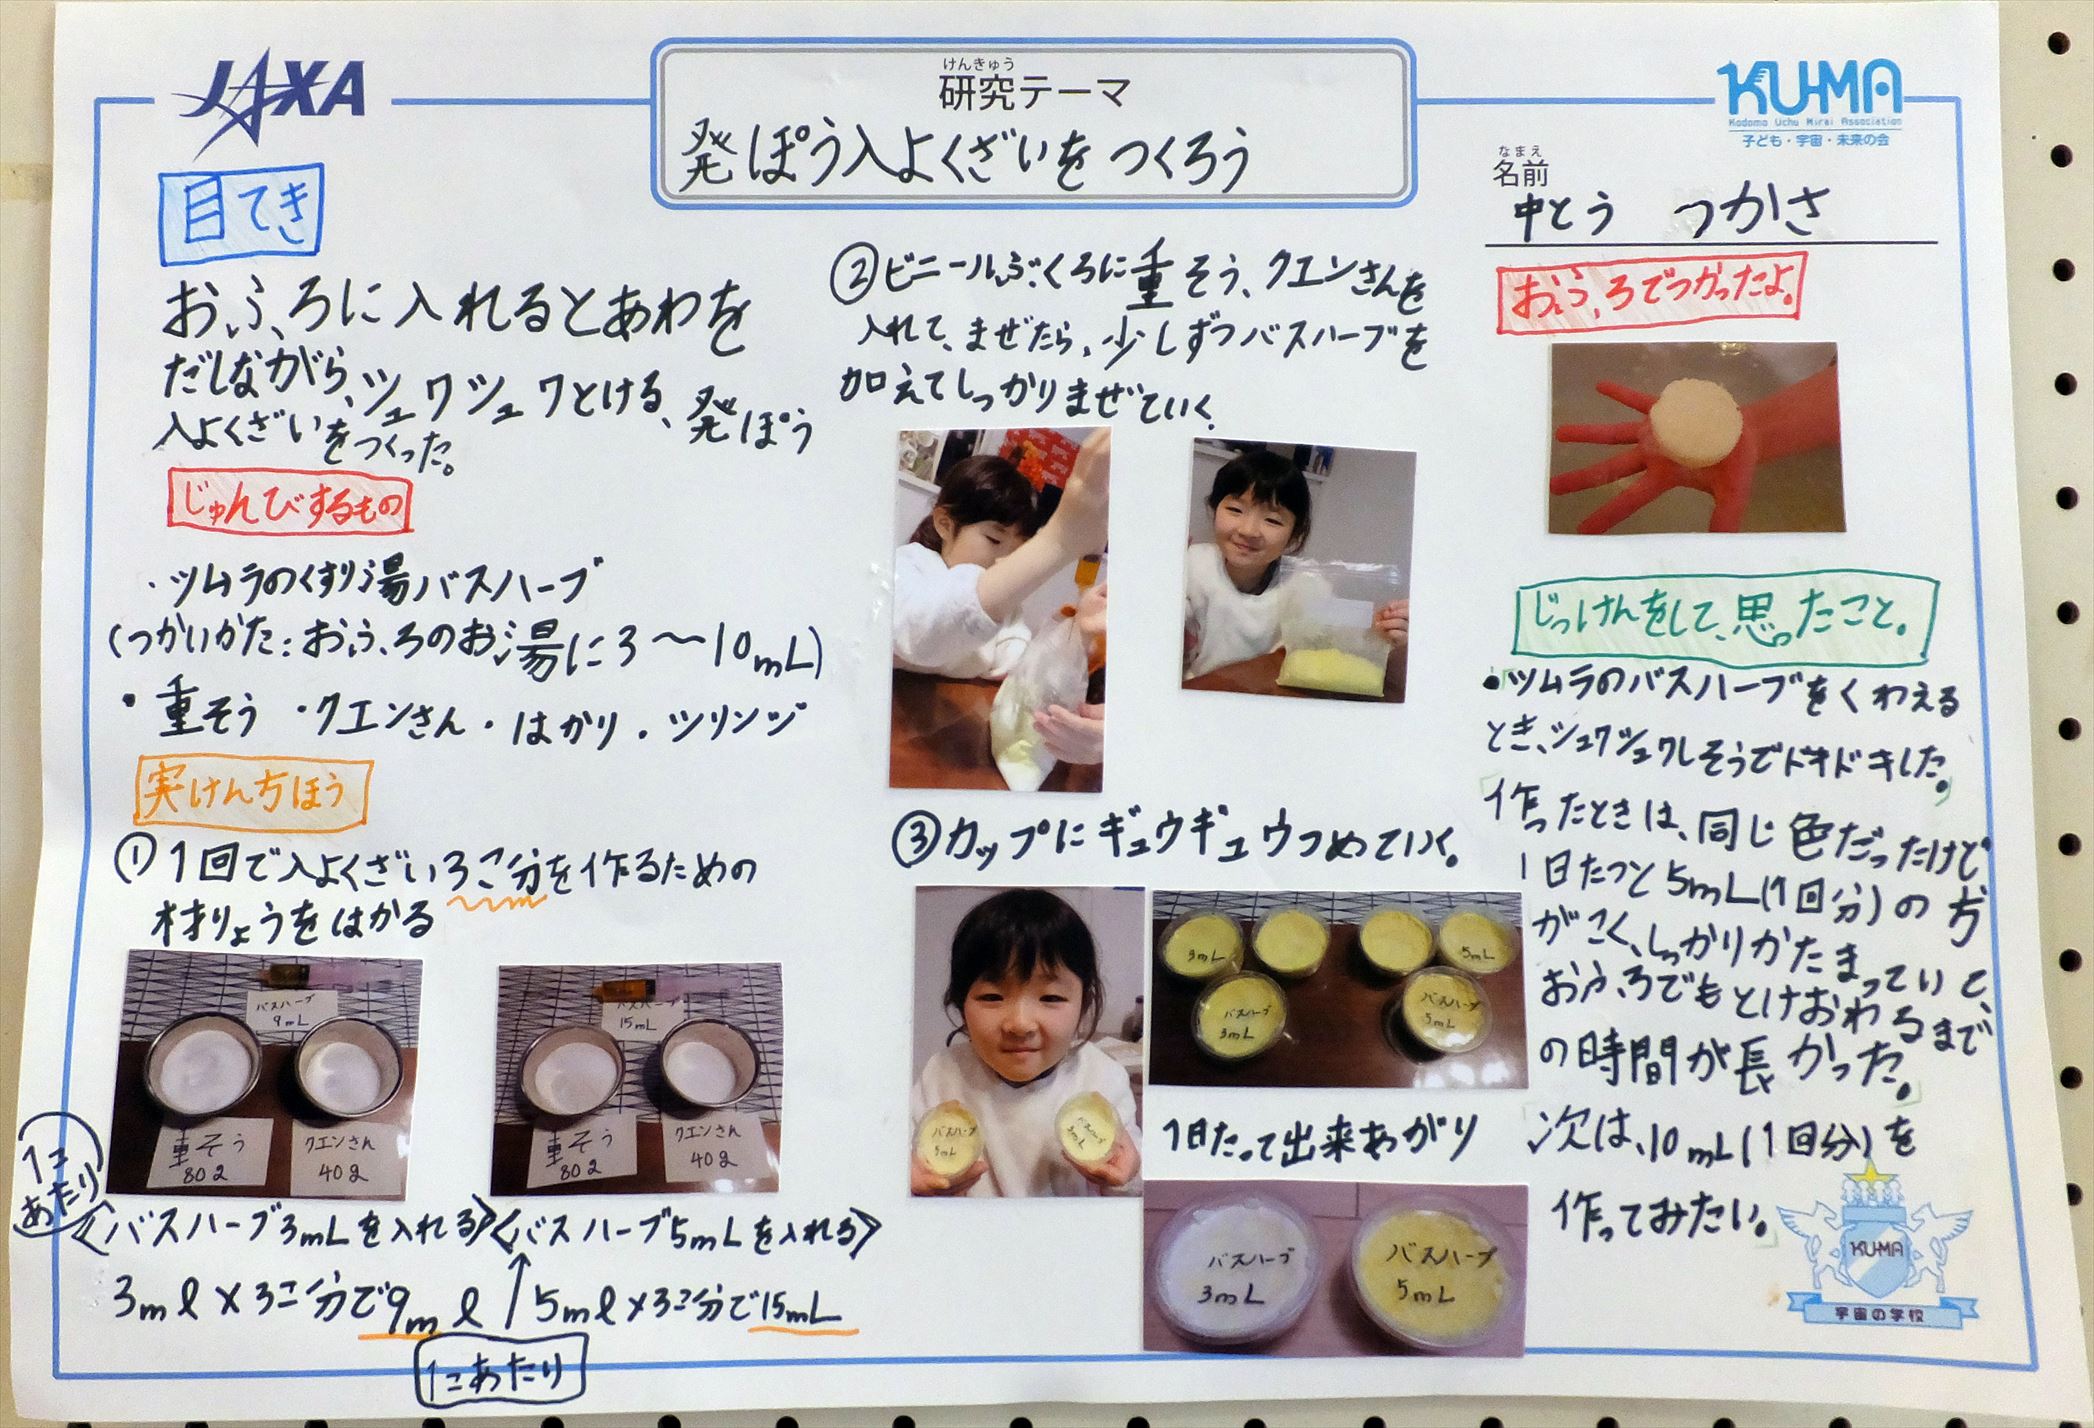 JAXA
けんきゅう
研究テーマ
発ぽう入よくざいをつくろう
KU-MA
Kodomo Uchu Mirai Association
子ども・宇宙・未来の会
なまえ
名前
中とう つかさ
目てき
おふろに入れるとあわを
だしながら、シュワシュワとける、発ぽう
入よくざいをつくった。
じゅんびするもの
・ツムラのくすり湯バスハーブ
(つかいかた:おふろのお湯に3〜10mL)
・重そう ・クエンさん・はかり・ツリンジ
実けんちほう
①1回で入よくざい3こ分を作るための
材りょうをはかる
バスハーブ
9mL
重そう
80g
クエンさん
40g
バスハーブ
15mL
重そう
80g
クエンさん
40g
1こ
あたり
<バスハーブ3mLを入れる><バスハーブ5mLを入れる>
3mℓ×3こ分で9mℓ 5mℓ×3こ分で15mL
1こあたり
②ビニールぶくろに重そう、クエンさんを
入れて、まぜたら、少しずつバスハーブを
加えてしっかりまぜていく。
③カップにギュウギュウつめていく。
バスハーブ
バスハーブ
3mL
3mL
5mL
バスハーブ
3mL
バスハーブ
5mL
1日たって出来あがり
バスハーブ
3mL
バスハーブ
5mL
おふろでつかったよ。
じっけんをして、思ったこと。
・ツムラのバスハーブをくわえる
とき、シュワシュワしそうでドキドキした。
作ったときは、同じ色だったけど
1日たつと5mL(1回分)の方
がこく、しっかりかたまっていて、
おふろでもとけおわるまで
の時間が長かった。
次は、10mL(1回分)を
作ってみたい。
KU-MA
宇宙の学校